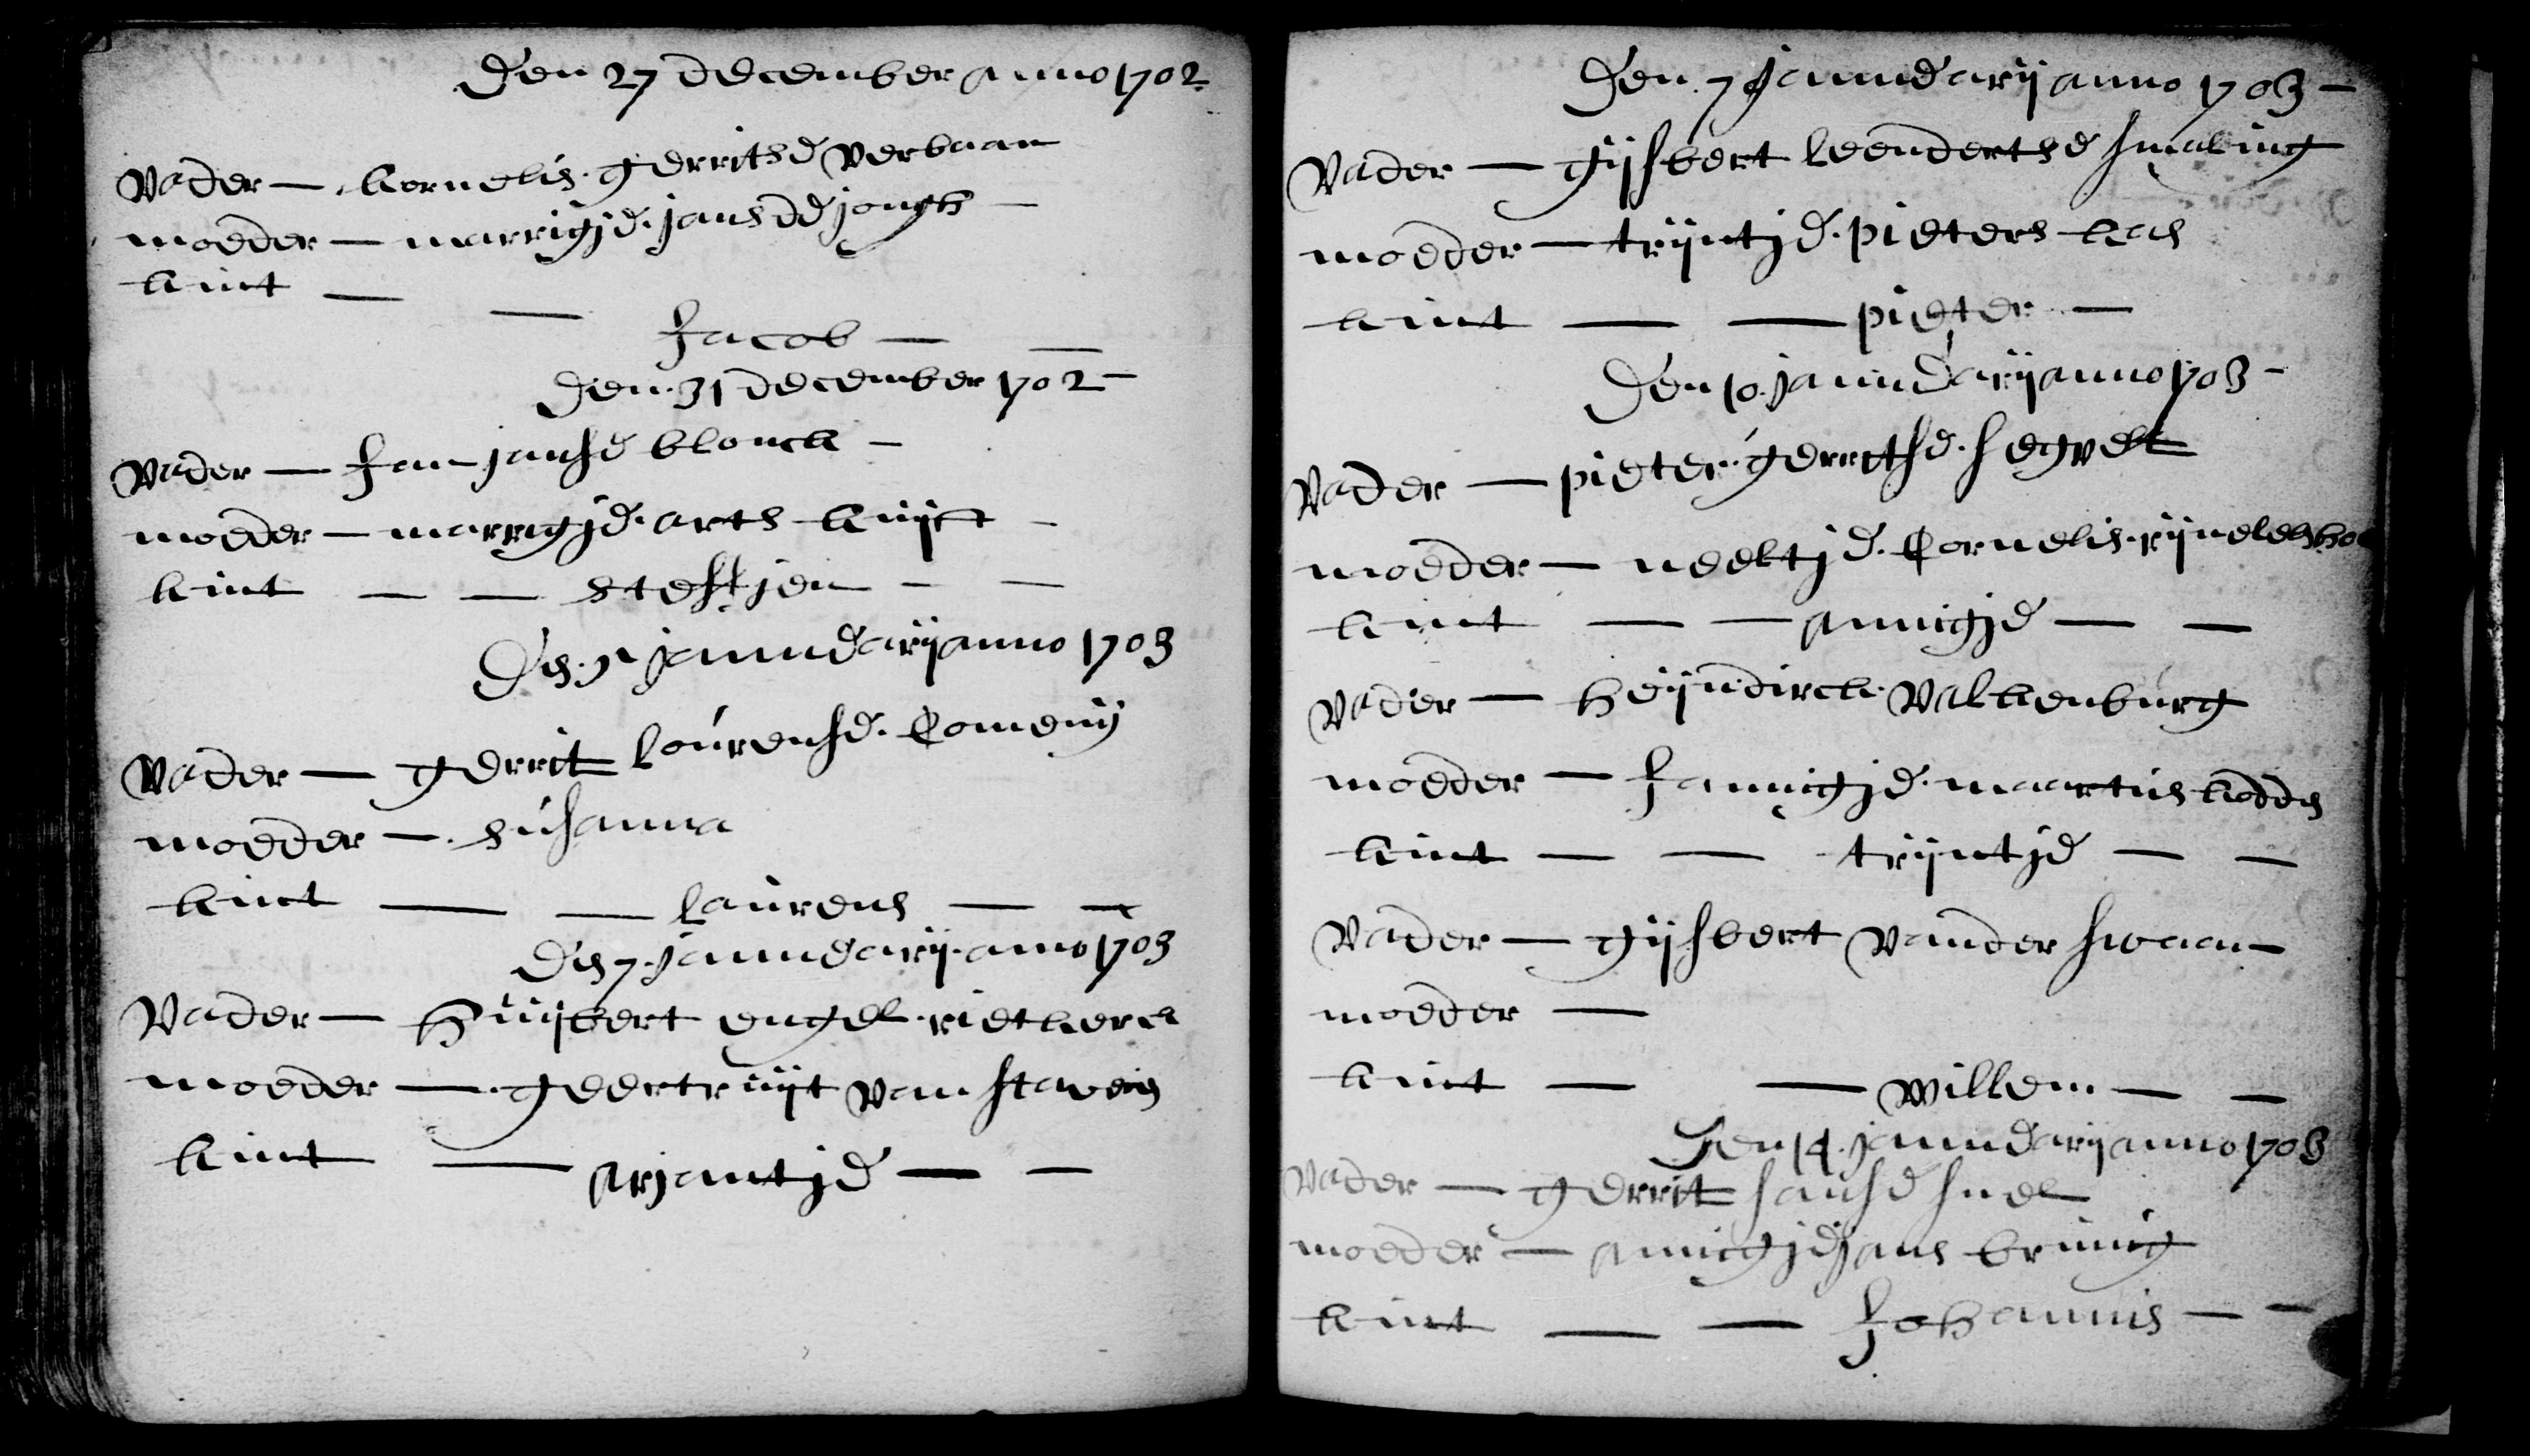 Den 27 december anno 1702
Vader — kornelis gerritse verbaan
moeder — marrigje jans de jongh —
kint — — Jacob — —
Den 31 december 1702 —
Vader — Jan janse blonck —
moeder — marrigje arts kuijf —
kint — — steffjen — —
Den januarij anno 1703
Vader — gerrit Lourense Comenij
moeder — susanna
kint — — Laurens — —
Den 7 januarij anno 1703
Vader — huijbert engel rietkerck
moeder — geertruijt van staveren
kint — arjantje — —
Den 7 Januarij anno 1703 —
Vader — gijsbert Leendertse smaling
moeder — trijntje pieters kas
kint — — pieter —
Den 10 januarij anno 1703 —
Vader — pieter gerritse segvelt
moeder — neeltje Cornelis
kint — — annigje — —
Vader — heijndirck Valkenburg
moeder — Jannigje maartens
kint — — trijntje — —
Vader — gijsbert Vander swaan —
moeder —
kint — — Willem — —
Den 14 januarij anno 1703
Vader — gerrit janse snel
moeder — annigje jans
kint — — Johannis — —